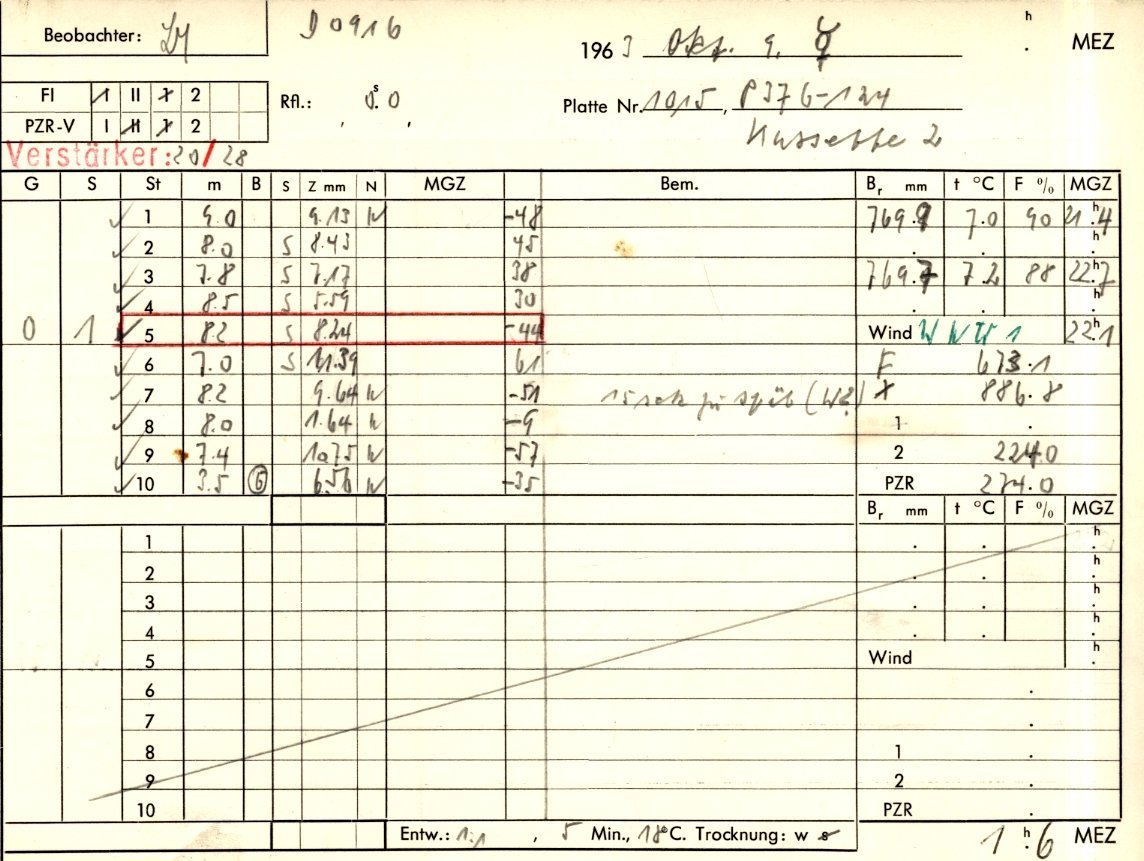 D 0916
Beobachter:
1963 Okt. 9. ☿ h . MEZ
FI 1 II 1 2
Rfl.: 0.s0
Platte Nr. 1015, P376-124
PZR-V I II 1 2
Kassette 2
Verstärker: 20/28
G S St m B S Z mm N MGZ Bem. Br mm t °C F % MGZ
1 9.0 9.13 N -48 769.9 7.0 90 21h.4
2 8.0 S 8.43 45 . . h.
3 7.8 S 7.17 38 769.7 7.2 88 22h.7
4 8.5 S 5.59 30 . . h.
0 1 5 8.2 S 8.24 -44 Wind WNW 1 22h.1
6 7.0 S 11.39 61 F 673.1
7 8.2 9.64 N -51 15 sek zu spät (W?) X 886.8
8 8.0 1.64 N -9 1 .
9 7.4 10.75 N -57 2 224.0
10 3.5 6 6.56 N -35 PZR 274.0
Br mm t °C F % MGZ
1 . . h.
2 . . h.
3 . . h.
4 . . h.
5 Wind h.
6 .
7 .
8 1 .
9 2 .
10 PZR .
Entw.: 1:1, 5 Min., 18°C. Trocknung: w s 1h.6 MEZ